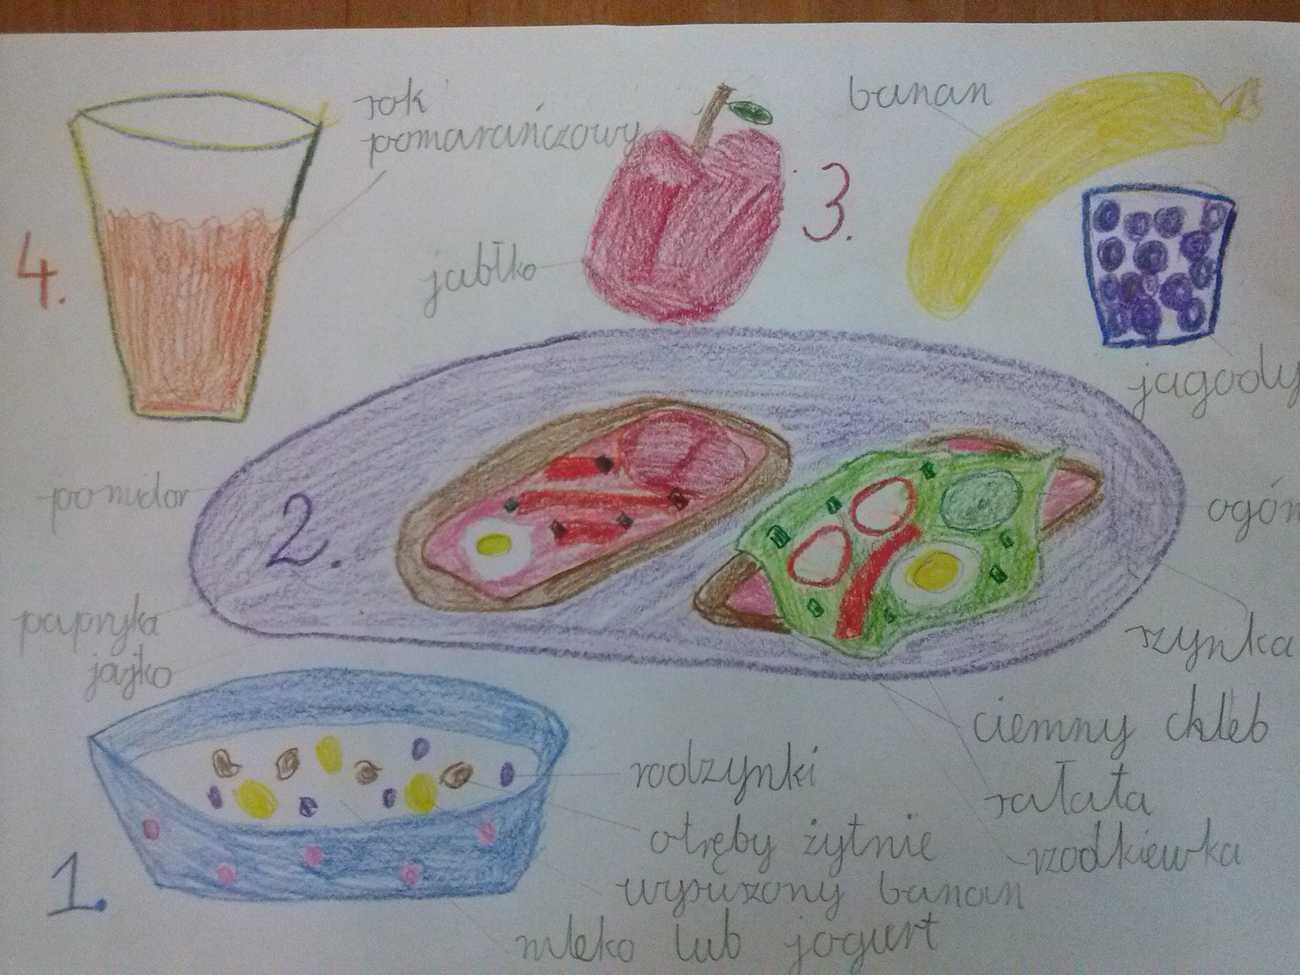 sok
pomarańczowy
4.
jabłko
3.
banan
jagody
pomidor
2.
papryka
jajko
ogór
szynka
ciemny chleb
sałata
rzodkiewka
1.
rodzynki
otręby żytnie
wysuszony banan
mleko lub jogurt